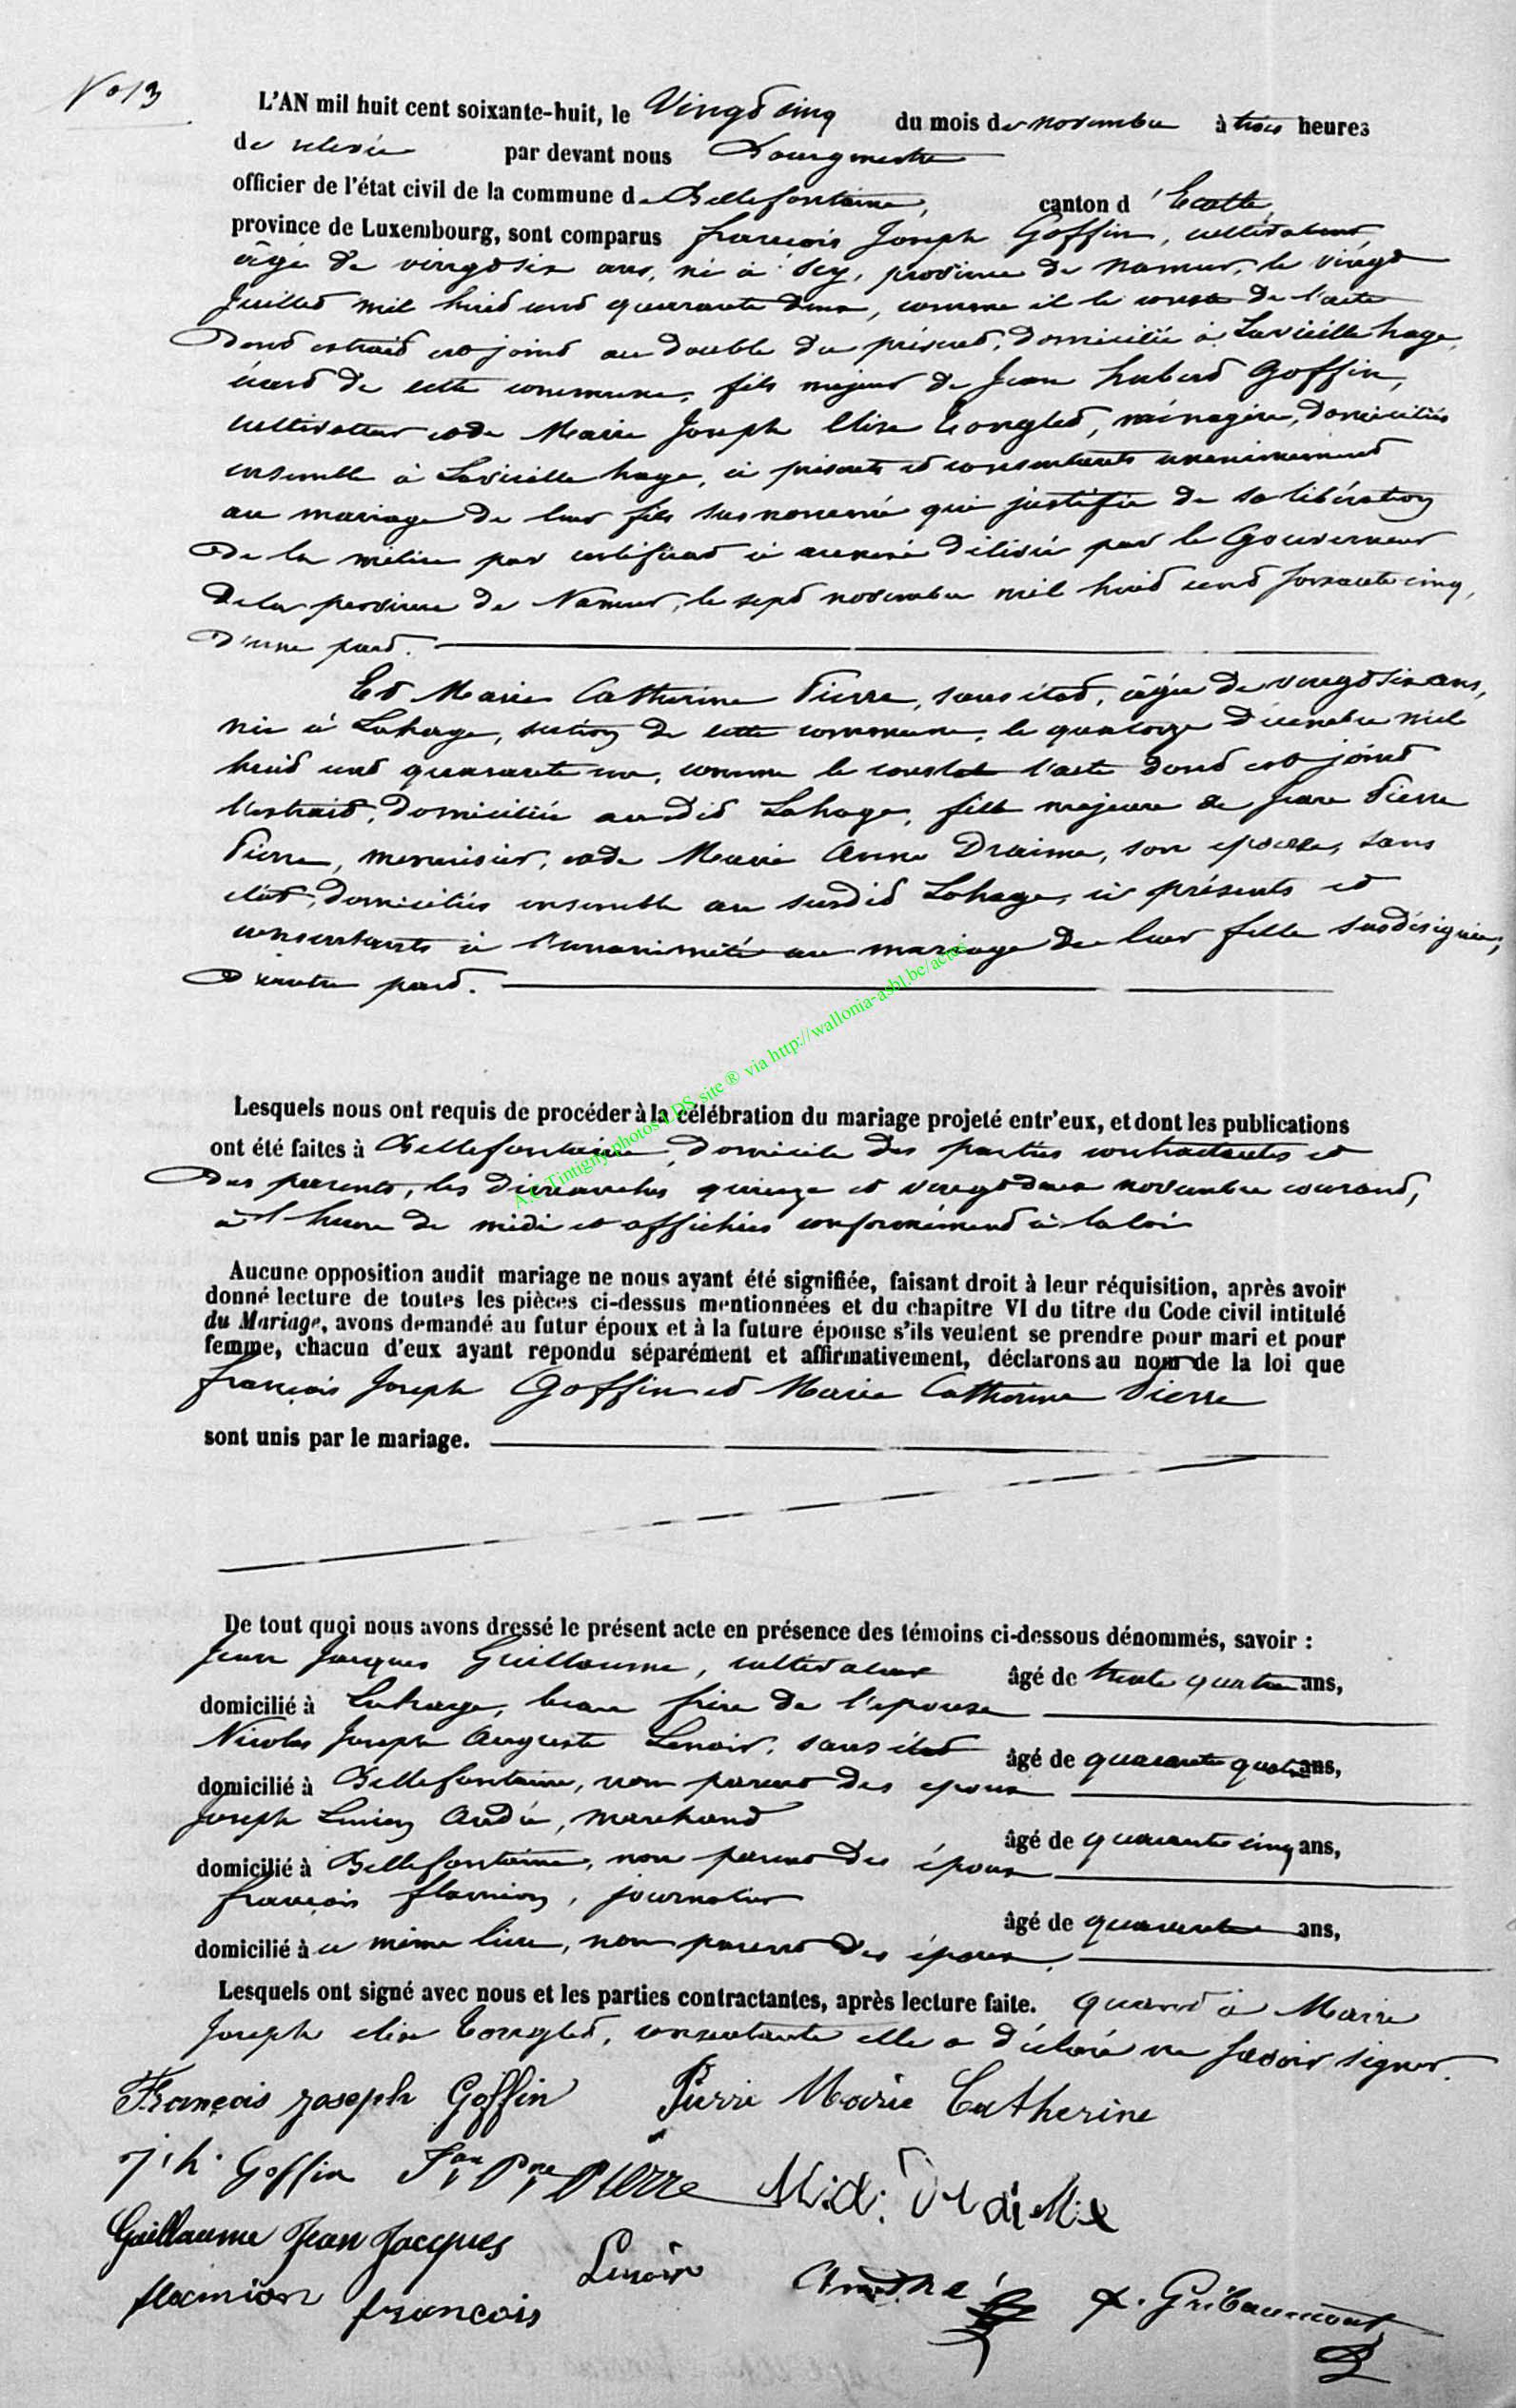 N° 13
L'AN mil huit cent soixante-huit, le Vingt cinq du mois de novembre à trois heures
de relevée par devant nous Bourgmestre
officier de l'état civil de la commune de Bellefontaine, canton d'Etalle,
province de Luxembourg, sont comparus françois Joseph Goffin, cultivateur
âgé de vingt six ans, né à Scy, province de Namur, le vingt
Juillet mil huit cent quarante deux, comme il le conste de l'acte
dont extrait est joint au double du présent, domicilié à Lavieille hage,
écart de cette commune, fils majeur de Jean hubert Goffin,
cultivateur et de Marie Joseph Elise Tonglet, ménagère, domiciliés
ensemble à Lavieille hage, ci présents et consentants unanimement
au mariage de leur fils susnommé qui justifie de sa libération
de la milice par certificat ci annexé délivré par le Gouverneur
de la province de Namur, le sept novembre mil huit cent soixante cinq,
d'une part.
Et Marie Catherine Pierre, sans état, âgée de vingt six ans,
née à Lahage, section de cette commune, le quatorze décembre mil
huit cent quarante un, comme le constate l'acte dont est joint
l'extrait, domiciliée audit Lahage, fille majeure de Jean Pierre
Pierre, menuisier, et de Marie Anne Draime, son épouse, sans
état, domiciliés ensemble au susdit Lahage, ci présents et
consentants à l'unanimité au mariage de leur fille susdésignée,
d'autre part.
Lesquels nous ont requis de procéder à la célébration du mariage projeté entr'eux, et dont les publications
ont été faites à Bellefontaine, domicile des parties contractantes et
des parents, les dimanches quinze et vingt deux novembre courant,
à l'heure de midi et affichées conformément à la loi
Aucune opposition audit mariage ne nous ayant été signifiée, faisant droit à leur réquisition, après avoir
donné lecture de toutes les pièces ci-dessus mentionnées et du chapitre VI du titre du Code civil intitulé
du Mariage, avons demandé au futur époux et à la future épouse s'ils veulent se prendre pour mari et pour
femme, chacun d'eux ayant repondu séparément et affirmativement, déclarons au nom de la loi que
françois Joseph Goffin et Marie Catherine Pierre
sont unis par le mariage.
De tout quoi nous avons dressé le présent acte en présence des témoins ci-dessous dénommés, savoir :
Jean Jacques Guillaume, cultivateur âgé de trente quatre ans,
domicilié à Lahage, beau frère de l'épouse
Nicolas Joseph Auguste Lenoir, sans état âgé de quarante quatre ans,
domicilié à Bellefontaine, non parent des epoux
Joseph Lucien André, marchand âgé de quarante cinq ans,
domicilié à Bellefontaine, non parent des époux
françois flamion, journalier âgé de quarante ans,
domicilié à ce même lieu, non parent des époux.
Lesquels ont signé avec nous et les parties contractantes, après lecture faite. Quant à Marie
Joseph elise Tonglet, consentante elle a déclaré ne savoir signer.
François joseph Goffin Pierre Marie Catherine
j. h. Goffin Jean Pre Pierre M: a: Draime
Guillaume Jean Jacques Lenoir
flamion françois André Gribaumont
A.C. Tintigny photos LDS site ® via http://wallonia-asbl.be/actes